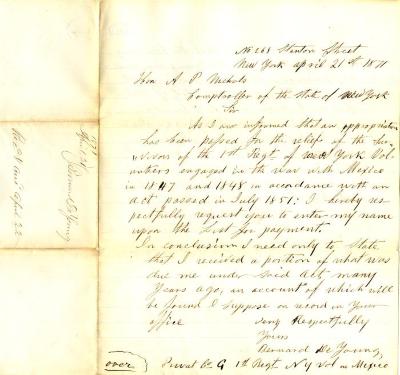 No 268 Stanton Street
New York april 21st 1871
Hon A P Nichols
Comptroller of the State of New York
Sir
As I am informed that an appropriation
has been passed for the reliefe of the Sur
vivors of the 1st Regt of New York Vol
unteers engaged in the war with Mexico
in 1847 and 1848 in accordance with an
act passed in July 1851; I hereby res
pectfully request you to enter my name
upon the List for payment.
In conclusion I need only to State
that I received a portion of what was
due me under said Act, many
Years ago, an account of which will
be found I suppose on record in Your
office
Very Respectfully
Yours
Bernard De Young
over Privat Co G 1st Regt N Y Vol in Mexico
Bernard De Young
april 22